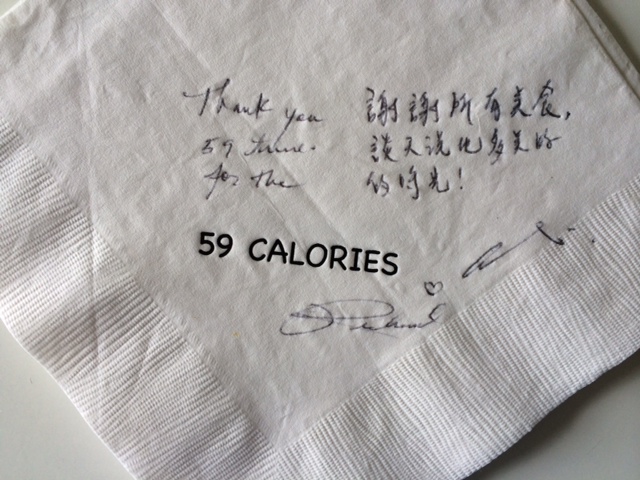 Thank you
59 time.
for the
謝謝所有美食,
談天说地多美好
的时光!
59 CALORIES